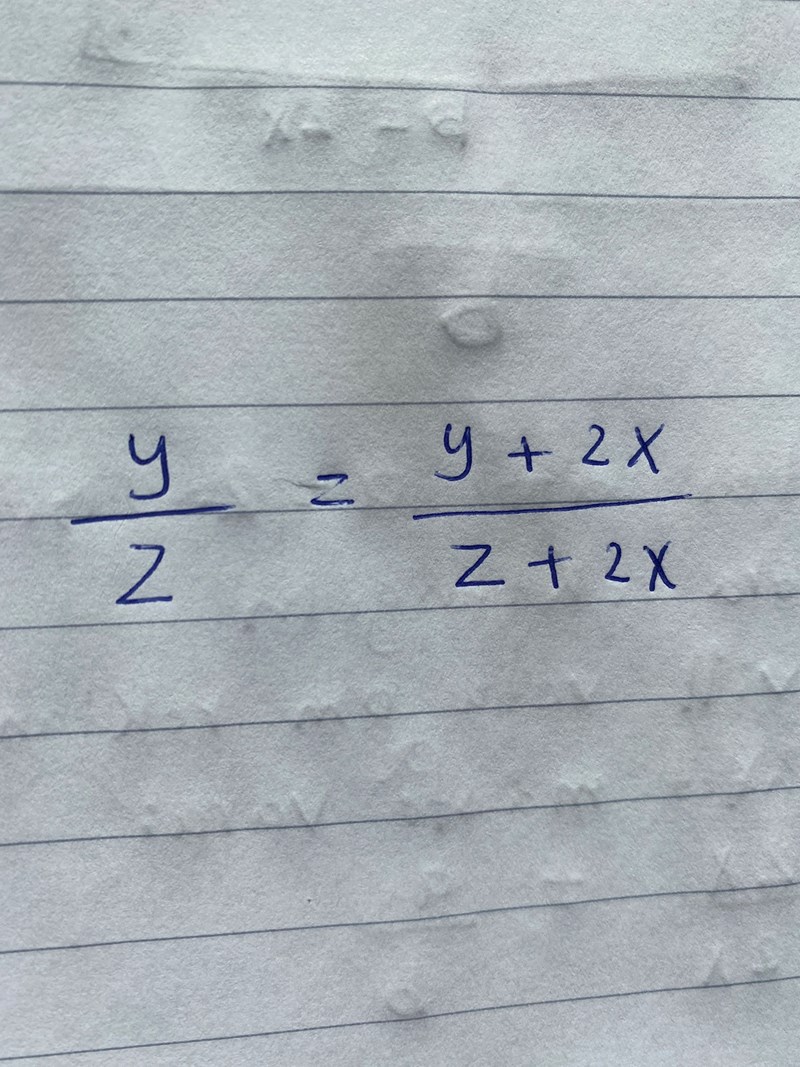 y/z = (y + 2x)/(z + 2x)